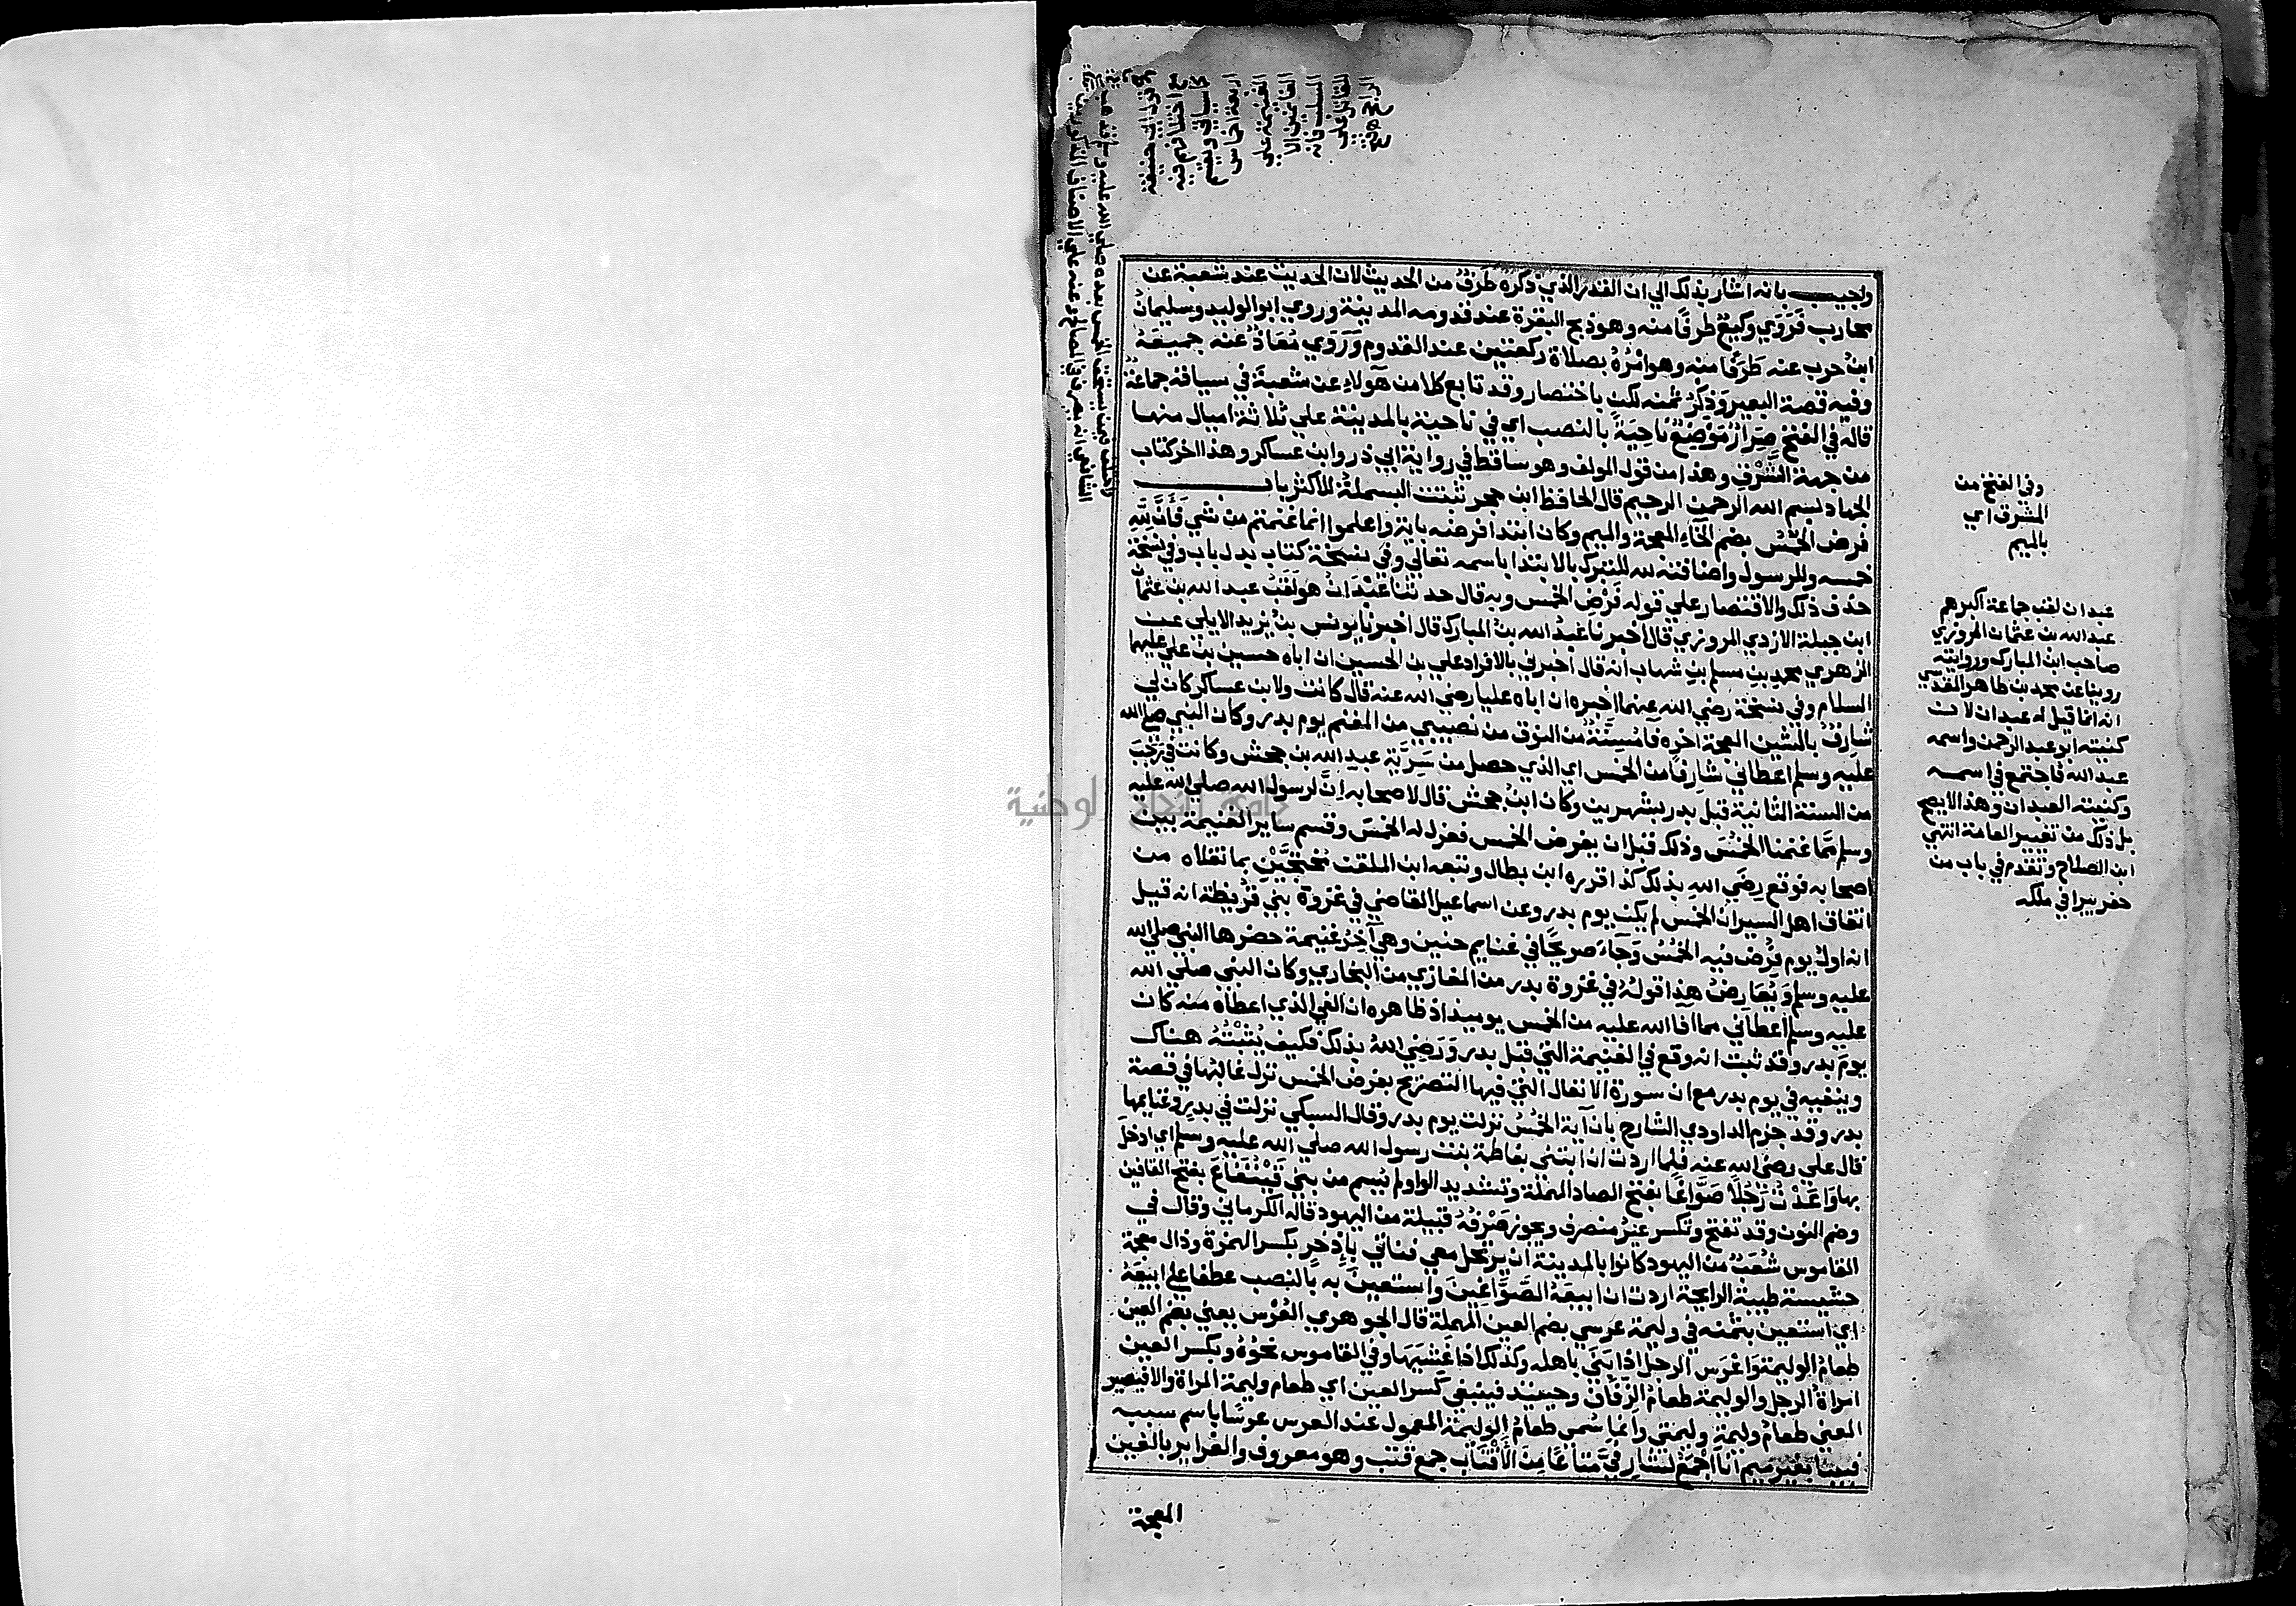 واجيب بانه اشار بذلك الي ان القدر الذي ذكره طرف من الحديث لان الحديث عند شعبة عن
محارب فروي وكيع طرفا منه وهو ذبح البقرة عند قدومه المدينة وروي ابو الوليد وسليمان
ابن حرب عنه طرفا منه وهو امره بصلاة ركعتين عند القدوم وروي معاذ عنه جميعه
وفيه قصة البعير وذكر ثمنه لكن باختصار وقد تابع كلا من هولاء عن شعبة في سياقه جماعة
قاله في الفتح صرار موضع ناحية بالنصب اي في ناحية بالمدينة علي ثلاثة اميال منها
من جهة الشرق وهذا من قول المولف وهو ساقط في رواية ابي ذر وابن عساكر وهذا اخر كتاب
الجهاد بسم الله الرحمن الرحيم قال الحافظ ابن حجر ثبتت البسملة للاكثر باب
فرض الخمس بضم الخاء المعجمة والميم وكان ابتدا فرضه باية واعلموا انما غنمتم من شي فان لله
خمسه وللرسول واضافته لله للتبرك بالابتدا باسمه تعالي وفي نسخة كتاب بدل باب وفي نسخة
حذف ذلك والاقتصار علي قوله فرض الخمس وبه قال حدثنا عبدان هو لقب عبد الله بن عثمان
ابن جبلة الازدي المروزي قال اخبرنا عبد الله بن المبارك قال اخبرنا يونس بن يزيد الايلي عن
الزهري محمد بن مسلم بن شهاب انه قال اخبرني بالافراد علي بن الحسين ان اباه حسين بن علي عليهما
السلام وفي نسخة رضي الله عنهما اخبره ان اباه عليا رضي الله عنه قال كانت ولابن عساكر كان لي
شارف بالشين المعجمة اخره فا مسنة من النوق من نصيبي من المغنم يوم بدر وكان النبي صلي الله
عليه وسلم اعطاني شارفا من الخمس اي الذي حصل من سرية عبد الله بن جحش وكانت في رجب
من السنة الثانية قبل بدر بشهرين وكان ابن جحش قال لاصحابه ان لرسول الله صلي الله عليه
وسلم مما غنمنا الخمس وذلك قبل ان يفرض الخمس فعزل له الخمس وقسم ساير الغنيمة بين
اصحابه فوقع رضي الله بذلك كذا قرره ابن بطال وتبعه ابن الملقن محتجين بما نقلاه من
اتفاق اهل السير ان الخمس لم يكن يوم بدر وعن اسماعيل القاضي في غزوة بني قريظة انه قيل
انه اول يوم فرض فيه الخمس وجاء صريحا في غنايم حنين وهي اخر غنيمة حضرها النبي صلي الله
عليه وسلم ويعارض هذا قوله في غزوة بدر من المغازي من البخاري وكان النبي صلي الله
عليه وسلم اعطاني مما افا الله عليه من الخمس يوميذ اذ ظاهره ان الفي الذي اعطاه منه كان
يوم بدر وقد ثبت انه وقع في الغنيمة التي قبل بدر ورضي الله بذلك فكيف يثبته هناك
وينفيه في يوم بدر مع ان سورة الانفال التي فيها التصريح بفرض الخمس نزل غالبها في قصة
بدر وقد جزم الداودي الشارح بان اية الخمس نزلت يوم بدر وقال السبكي نزلت في بدر وغنايمها
قال علي رضي الله عنه فلما اردت ان ابتني بفاطمة بنت رسول الله صلي الله عليه وسلم اي ادخل
بها واعدت رجلا صواغا بفتح الصاد المهملة وتشديد الواو ولم يسم من بني قينقاع بفتح القافين
وضم النون وقد تفتح وتكسر غير منصرف ويجوز صرفه قبيلة من اليهود قاله الكرماني وقال في
القاموس شعب من اليهود كانوا بالمدينة ان يرتحل معي فناتي باذخر بكسر الهمزة وذال معجمة
حشيسة طيبة الرايحة اردت ان ابيعه الصواغين واستعين به بالنصب عطفا علي ابيعه
اي استعين بثمنه في وليمة عرسي بضم العين المهملة قال الجوهري العرس يعني بضم العين
طعام الوليمة واعرس الرجل اذا بني باهله وكذلك اذا غشيها وفي القاموس نحوه وبكسر العين
امراة الرجل والوليمة طعام الزفاف وحينيذ فينبغي كسر العين اي طعام وليمة المراة والا فيصير
المعني طعام وليمة وليمتي وانما سمي طعام الوليمة المعمول عند العرس عرسا باسم سببه
فبينا بغير ميم انا اجمع لشارفي متاعا من الاقتاب جمع قتب وهو معروف والغراير بالغين
المعجمة
وفي الفتح من
المشرق اي
بالميم
عبدان لقب جماعة اكبرهم
عبد الله بن عثمان المروزي
صاحب ابن المبارك وروايته
روينا عن محمد بن طاهر المقدسي
انه انما قيل له عبدان لان
كنيته ابو عبد الرحمن واسمه
عبد الله فاجتمع في اسمه
وكنيته العبدان وهذا لا يصح
بل ذلك من تغيير العامة انتهي
ابن الصلاح وتقدم في باب من
حفر بيرا في ملكه